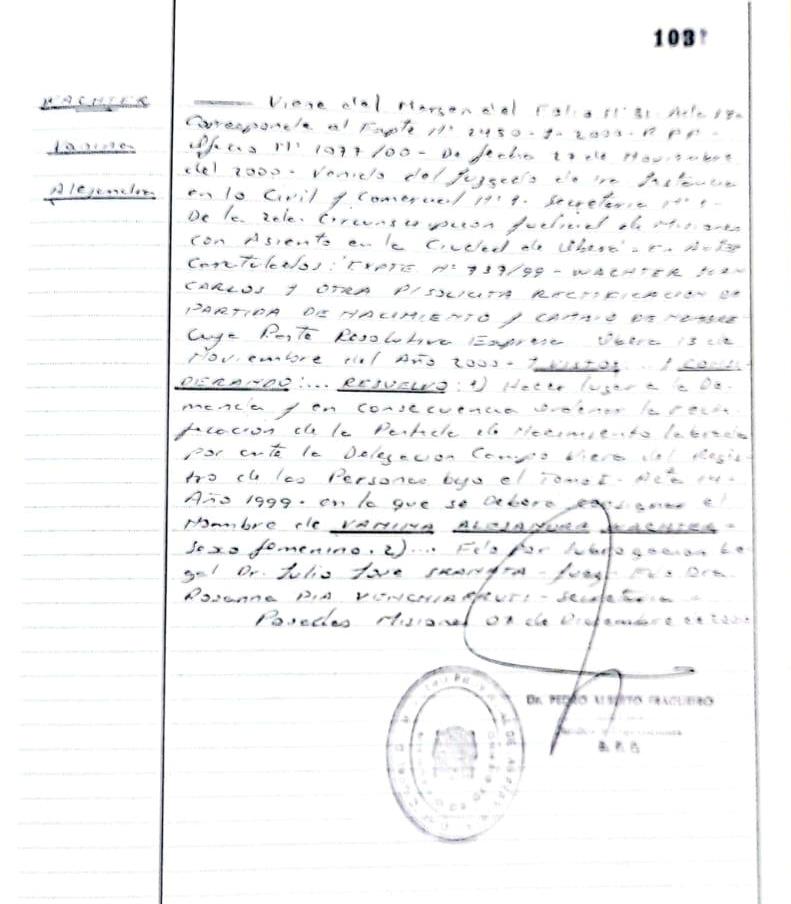 103
WACHTER
Vanina
Alejandra
Viene del Margen del Folio Nº 31. Acta
Corresponde al Expte Nº 2450-
Oficio Nº 1077/00 - De fecha 27 de Noviembre
del 2000 - Venido del Juzgado de 1ra Instancia
en lo Civil y Comercial Nº 1. Secretaria Nº 1 -
De la 2da. Circunscripcion Judicial de Misiones
con Asiento en la Ciudad de Oberá - En Autos
Caratulados: "EXPTE Nº 737/99 - WACHTER JUAN
CARLOS Y OTRA P/SOLICITA RECTIFICACION DE
PARTIDA DE NACIMIENTO Y CAMBIO DE NOMBRE
Cuya Parte Resolutiva Expresa Oberá 13 de
Noviembre del Año 2000 - Y VISTOS ... Y CONSI
DERANDO: ... RESUELVO: 1) Hacer lugar a la De-
manda y en consecuencia ordenar la recti-
ficacion de la Partida de Nacimiento labrada
por ante la Delegacion Campo Viera del Regis-
tro de las Personas bajo el Tomo I - Acta 14 -
Año 1999 - en la que se debera consignar el
Nombre de VANINA ALEJANDRA WACHTER -
sexo femenino. 2) ... Fdo por Subrogacion Le-
gal Dr. Julio José - Juez - Fdo Dra.
Rosanna PIA - Secretaria -
Posadas Misiones 07 de Diciembre de 2000
Dr. PEDRO ALBERTO FRAGUEIRO